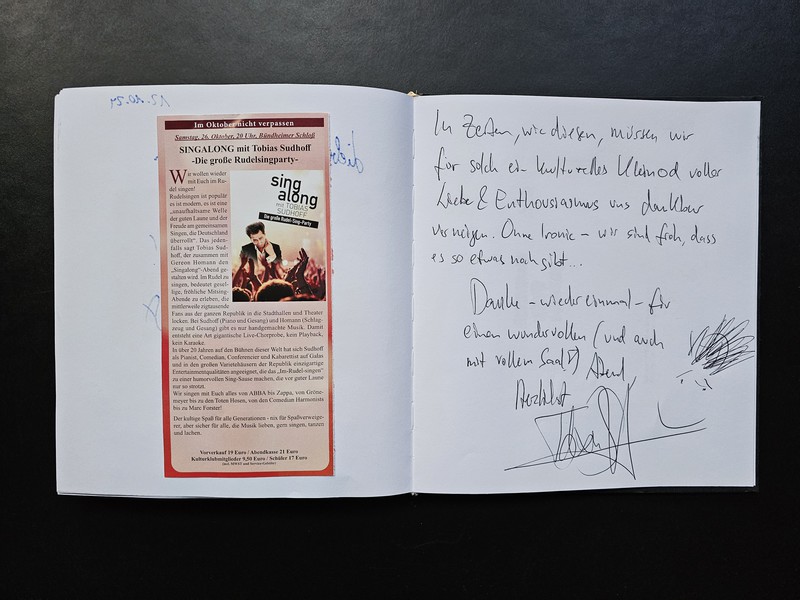 12.10.24
Im Oktober nicht verpassen
Samstag, 26. Oktober, 20 Uhr, Bündheimer Schloß
SINGALONG mit Tobias Sudhoff
-Die große Rudelsingparty-
Wir wollen wieder
mit Euch im Ru-
del singen!
Rudelsingen ist populär
es ist modern, es ist eine
„unaufhaltsame Welle
der guten Laune und der
Freude am gemeinsamen
Singen, die Deutschland
überrollt". Das jeden-
falls sagt Tobias Sud-
hoff, der zusammen mit
Gereon Homann den
„Singalong"-Abend ge-
stalten wird. Im Rudel zu
singen, bedeutet gesel-
lige, fröhliche Mitsing-
Abende zu erleben, die
mittlerweile zigtausende
Fans aus der ganzen Republik in die Stadthallen und Theater
locken. Bei Sudhoff (Piano und Gesang) und Homann (Schlag-
zeug und Gesang) gibt es nur handgemachte Musik. Damit
entsteht eine Art gigantische Live-Chorprobe, kein Playback,
kein Karaoke.
In über 20 Jahren auf den Bühnen dieser Welt hat sich Sudhoff
als Pianist, Comedian, Conferencier und Kabarettist auf Galas
und in den großen Varietehäusern der Republik einzigartige
Entertainmentqualitäten angeeignet, die das „Im-Rudel-singen"
zu einer humorvollen Sing-Sause machen, die vor guter Laune
nur so strotzt.
Wir singen mit Euch alles von ABBA bis Zappa, von Gröne-
meyer bis zu den Toten Hosen, von den Comedian Harmonists
bis zu Marc Forster!
Der kultige Spaß für alle Generationen - nix für Spaßverweige-
rer, aber sicher für alle, die Musik lieben, gern singen, tanzen
und lachen.
Vorverkauf 19 Euro / Abendkasse 21 Euro
Kulturklubmitglieder 9,50 Euro / Schüler 17 Euro
(incl. MWST und Servicegebühr)
sing
along
mit TOBIAS
SUDHOFF
Die große Rudel-Sing-Party
In Zeiten, wie diesen, müssen wir
für solch ein kulturelles Kleinod voller
Liebe & Enthousiasmus uns dankbar
verneigen. Ohne Ironie - wir sind froh, dass
es so etwas noch gibt...
Danke - wieder einmal - für
einen wundervollen (und auch
mit vollem Saal!) Abend
Herzlichst